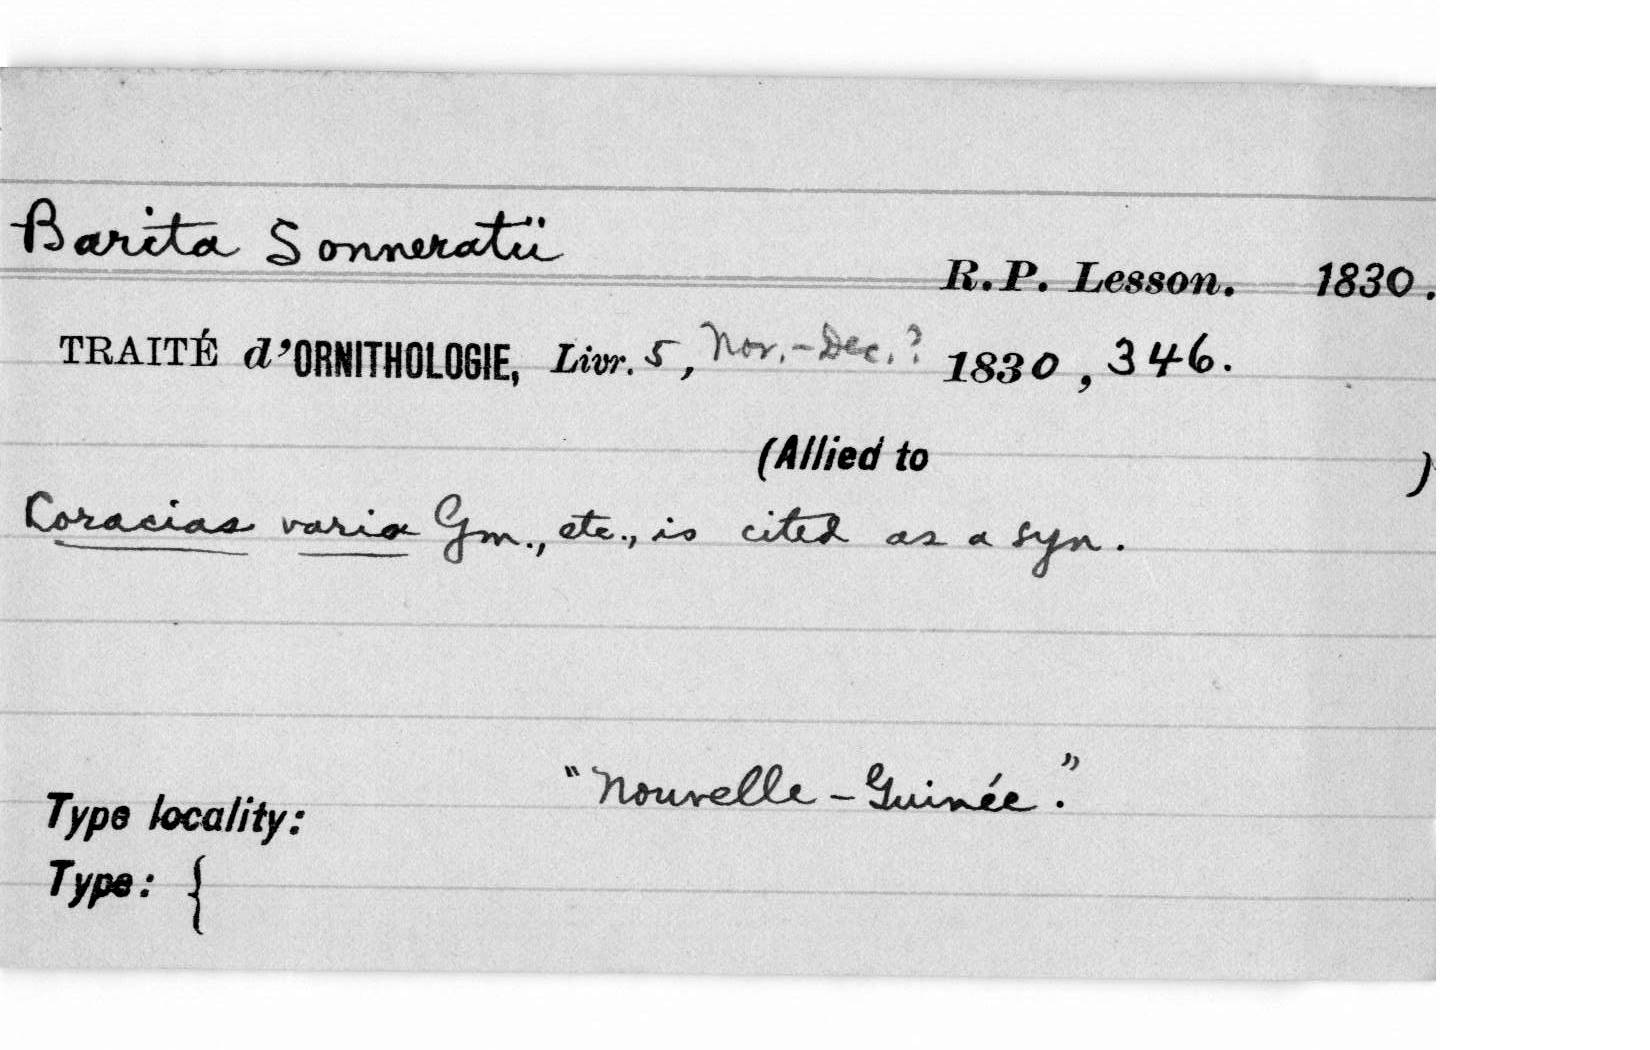 Barita Sonneratii
R.P. Lesson. 1830.
TRAITÉ d'ORNITHOLOGIE, Livr. 5, Nov.-Dec.? 1830, 346.
(Allied to )
Coracias varia Gm., etc., is cited as a syn.
"Nouvelle-Guinée."
Type locality:
Type: {